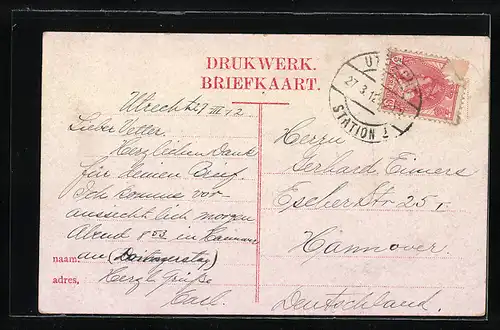 DRUKWERK.
BRIEFKAART.
UTRECHT
27.3.12
STATION
Utrecht 27 III 12
Lieber Vetter.
Herzlichen Dank
für deinen Brief.
Ich komme vor-
aussichtlich morgen
Abend 8 in Hannover
an (Donnerstag)
Herzl. Grüße
Carl.
naam
adres,
Herrn
Gerhard Eimers
Escher Str 25 I
Hannover.
Deutschland.